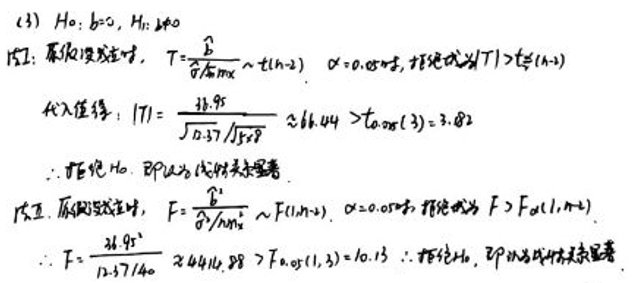 (3) H₀: b=0, H₁: b≠0
法I: 原假设成立时, T = b̂ / (σ̂/√n mx) ~ t(n-2) α=0.05时, 拒绝域为|T| > t_{α/2}(n-2)
代入值得: |T| = 36.95 / (√12.37/√5×8) ≈ 66.44 > t₀.₀₂₅(3) = 3.182
∴ 拒绝H₀. 即认为线性关系显著.
法II. 原假设成立时, F = b̂² / (σ̂²/n m²x) ~ F(1,n-2). α=0.05时, 拒绝域为 F > Fα(1,n-2).
∴ F = 36.95² / (12.37/40) ≈ 4414.88 > F₀.₀₅(1,3) = 10.13 ∴ 拒绝H₀, 即认为线性关系显著